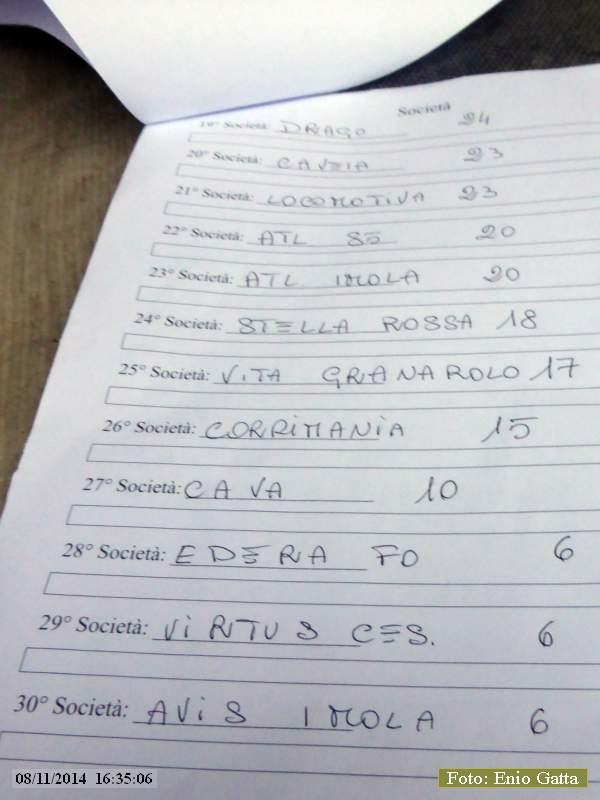 Società
19° Società: DRAGO 24
20° Società: CAVEIA 23
21° Società: LOCOMOTIVA 23
22° Società: ATL 85 20
23° Società: ATL IMOLA 20
24° Società: STELLA ROSSA 18
25° Società: VITA GRANAROLO 17
26° Società: CORRIMANIA 15
27° Società: CAVA 10
28° Società: EDERA FO 6
29° Società: VIRTUS CES. 6
30° Società: AVIS IMOLA 6
08/11/2014 16:35:06
Foto: Enio Gatta